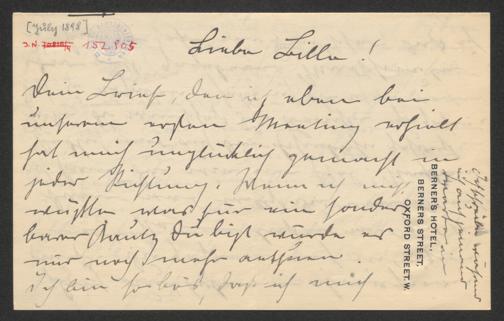 [July 1898]
I.N. 152.805
Liebe Bille!
Dein Brief, den ich eben bei
unserem ersten Meeting erhielt
hat mich unglücklich gemacht in
jeder Richtung. Wenn ich nicht
wüßte was für ein sonder
barer Kautz Du bist würde es
mir noch mehr anthun.
Ich bin so bös, daß ich mich
BERNERS HOTEL,
BERNERS STREET,
OXFORD STREET. W.